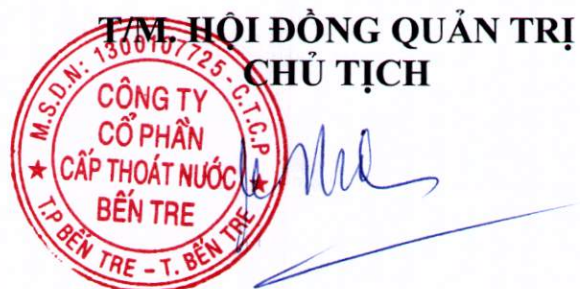 T/M. HỘI ĐỒNG QUẢN TRỊ
CHỦ TỊCH
M.S.D.N: 1300107725 - C.T.C.P
CÔNG TY
CỔ PHẦN
CẤP THOÁT NƯỚC
BẾN TRE
T.P BẾN TRE - T. BẾN TRE